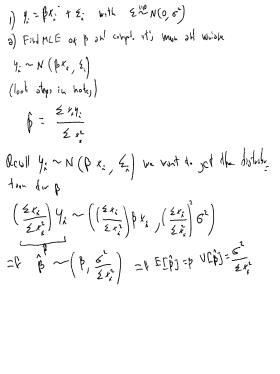 1) yᵢ = βxᵢ + εᵢ with ε ~iid N(0, σ²)
a) Find MLE of β and comput. it's mean and variance
yᵢ ~ N(βxᵢ, εᵢ)
(look steps in notes)
β̂ = Σxᵢyᵢ / Σxᵢ²
Recall yᵢ ~ N(βxᵢ, εᵢ) we want to get the distribu-
tion for β
(Σxᵢ / Σxᵢ²) yᵢ ~ ((Σxᵢ / Σxᵢ²) βxᵢ, (Σxᵢ / Σxᵢ²)² σ²)
β̂
=> β̂ ~ (β, σ² / Σxᵢ²) => E[β̂] = β V[β̂] = σ² / Σxᵢ²